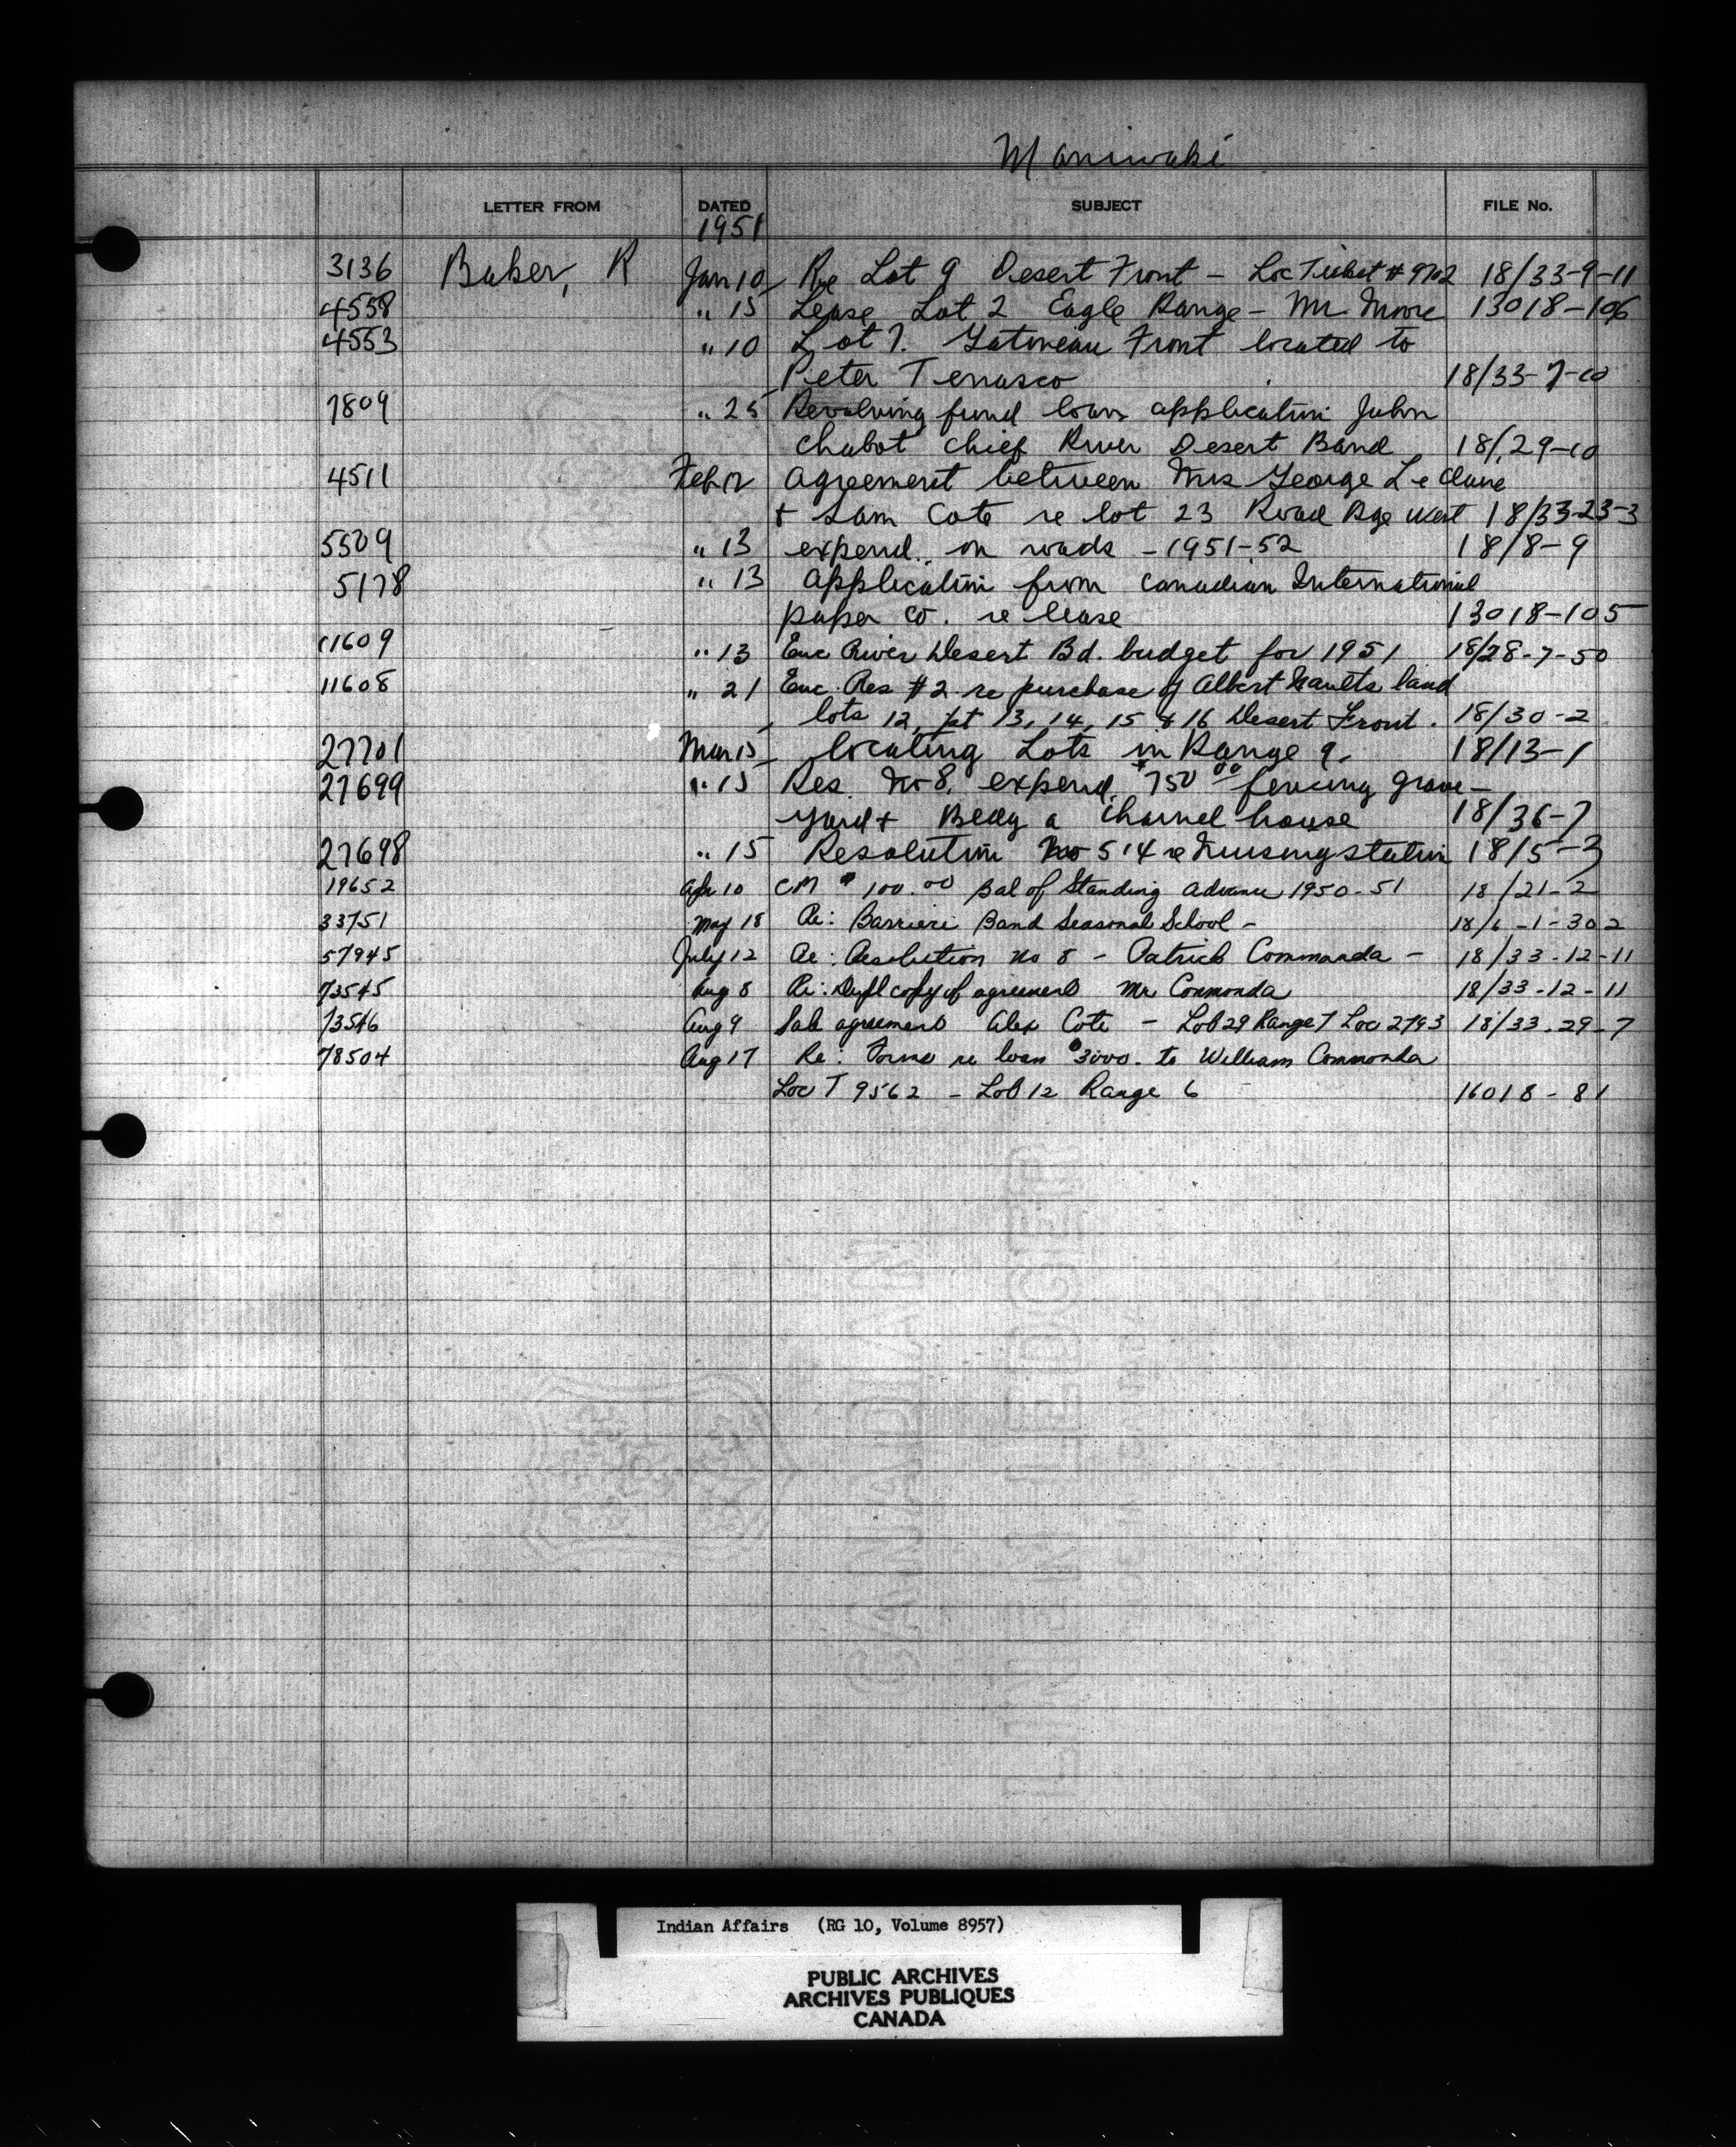 Maniwaki
LETTER FROM DATED SUBJECT FILE No.
1951
3136 Baker, R Jan 10 Re Lot 9 Desert Front - Loc Ticket # 9702 18/33-9-11
4558 " 15 Lease Lot 2 Eagle Range - Mr Moore 13018-106
4553 " 10 Lot 7. Gatineau Front located to
Peter Tenasco 18/33-7-10
7809 " 25 Revolving fund loan application John
Chabot Chief River Desert Band 18/29-10
4511 Feb 12 Agreement between Mrs George Le Claire
+ Sam Cote re lot 23 Road Rge West 18/33-23-3
5509 " 13 expend. on roads - 1951-52 18/8-9
5178 " 13 Application from Canadian International
paper co. re lease 13018-105
11609 " 13 Enc River Desert Bd. budget for 1951 18/28-7-50
11608 " 21 Enc. Res #2 re purchase of Albert Naults land
lots 12, pt 13, 14, 15 & 16 Desert Front. 18/30-2
27701 Mar 15 locating Lots in Range 9. 18/13-1
27699 " 15 Res. No 8. expend. $750 00 fencing grave-
yard + Bldg a Charnel house 18/36-7
27698 " 15 Resolution No 514 re Nursing station 18/5-3
19652 Apr 10 CM $ 100.00 Bal of Standing Advance 1950-51 18/21-2
33751 May 18 Re: Barriere Band Seasonal School - 18/6-1-302
57945 July 12 Re: Resolution No 8 - Patrick Commanda - 18/33-12-11
73545 Aug 8 Re: Dupl copy of agreement Mr Commonda 18/33-12-11
73546 Aug 9 Sale agreement Alex Cote - Lot 29 Range 7 Loc 2793 18/33-29-7
78504 Aug 17 Re: Forms re loan $3000. to William Commonda
Loc T 9562 - Lot 12 Range 6 16018-81
Indian Affairs (RG 10, Volume 8957)
PUBLIC ARCHIVES
ARCHIVES PUBLIQUES
CANADA